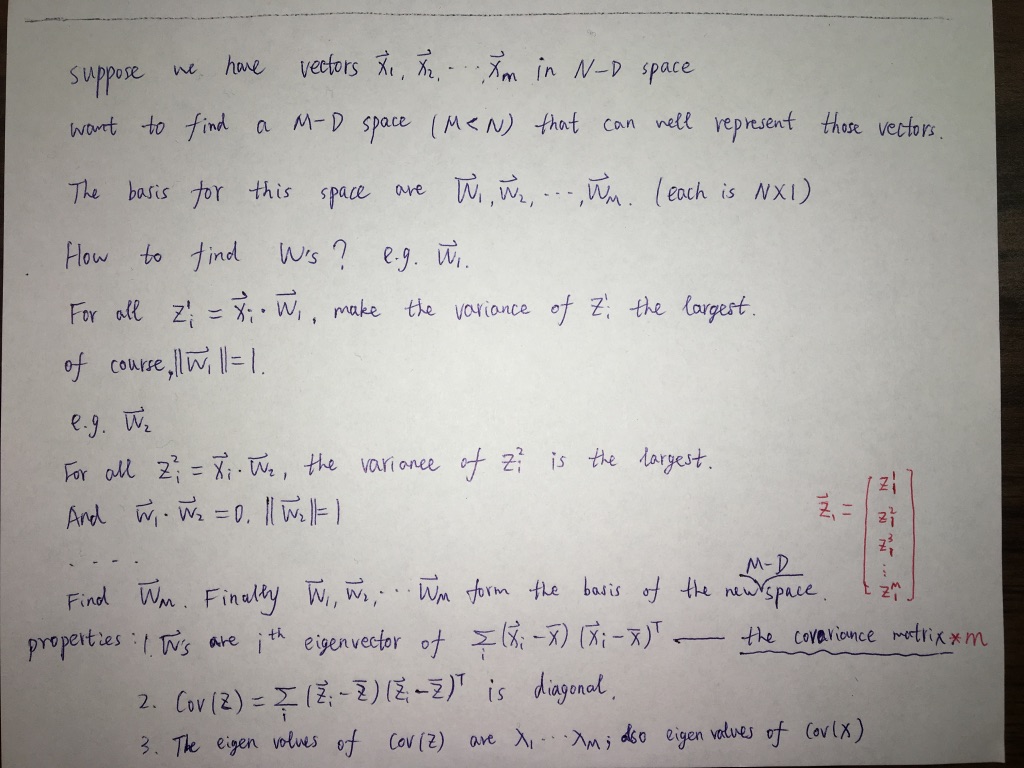 suppose we have vectors x⃗₁, x⃗₂, ... x⃗m in N-D space
want to find a M-D space (M<N) that can well represent those vectors.
The basis for this space are W⃗₁, W⃗₂, ..., W⃗m. (each is N×1)
How to find W's? e.g. W⃗₁.
For all z¹ᵢ = x⃗ᵢ · W⃗₁, make the variance of z¹ᵢ the largest.
of course, ||W⃗₁||=1.
e.g. W⃗₂
For all z²ᵢ = x⃗ᵢ · W⃗₂, the variance of z²ᵢ is the largest.
And W⃗₁ · W⃗₂ = 0. ||W⃗₂||=1
z⃗₁ = [z¹₁ z²₁ z³₁ ⋮ zᴹ₁]
....
M-D
Find W⃗m. Finally W⃗₁, W⃗₂, ... W⃗m form the basis of the new space.
properties: 1. W⃗'s are iᵗʰ eigenvector of Σᵢ (x⃗ᵢ - x̄) (x⃗ᵢ - x̄)ᵀ — the covariance matrix *m
2. Cov(z) = Σᵢ (z⃗ᵢ - z̄) (z⃗ᵢ - z̄)ᵀ is diagonal.
3. The eigen values of Cov(z) are λ₁ ... λM; also eigen values of Cov(X)